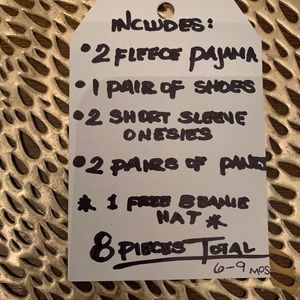 INCLUDES:
• 2 FLEECE PAJAMA
• 1 PAIR OF SHOES
• 2 SHORT SLEEVE
ONESIES
• 2 PAIRS OF PANTS
* 1 FREE BEANIE
HAT *
8 PIECES TOTAL
6-9 MOS